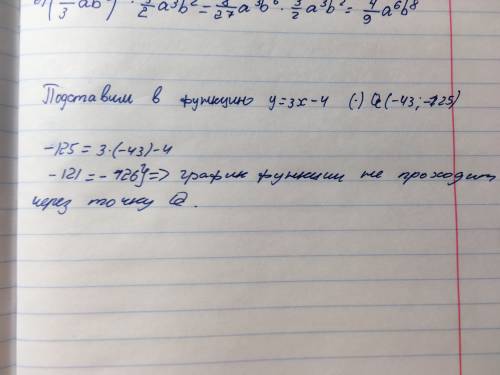 (1/3 ab²)³ · 3/2 a³b² = 8/27 a³b⁶ · 3/2 a³b² = 4/9 a⁶b⁸
Подставим в функцию y=3x-4 (·) Q (-43; -125)
-125 = 3·(-43)-4
-121 = - 129 => график функции не проходит
через точку Q.